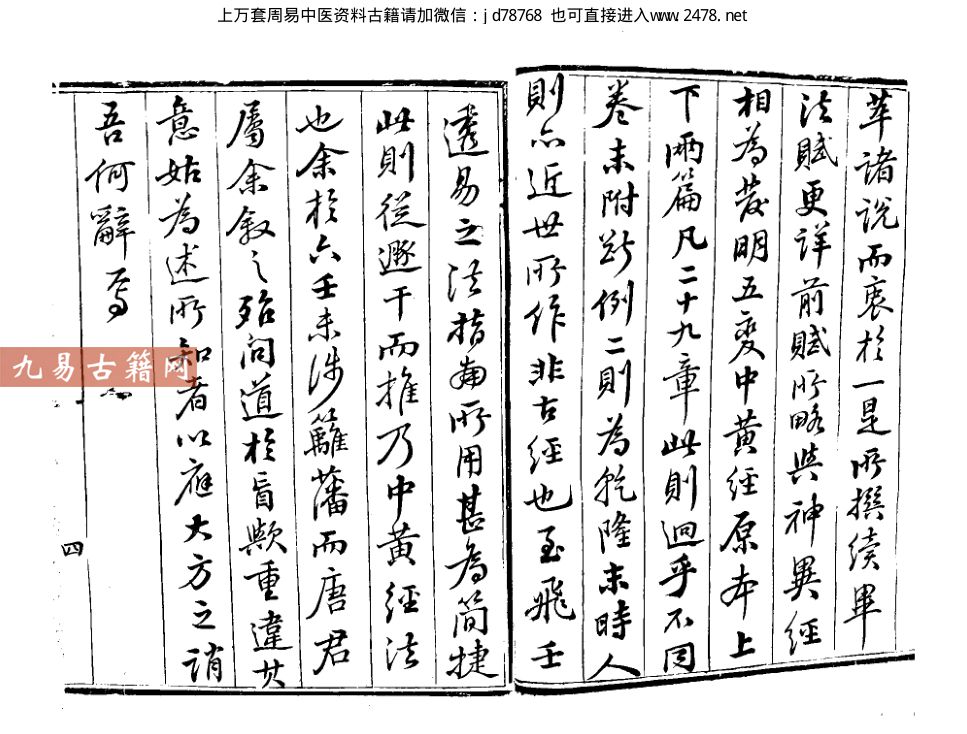 上万套周易中医资料古籍请加微信：jd78768 也可直接进入www.2478.net
萃諸說而衷於一是所撰續畢
法賦更詳前賦所略與神異經
相為發明五變中黃經原本上
下兩篇凡二十九章此則迥乎不同
卷末附斷例二則為乾隆末時人
則亦近世所作非古經也至飛壬
透易之法指南所用甚為簡捷
此則從遯干而推乃中黃經法
也余於六壬未涉籬藩而唐君
屬余敘之殆問道於盲歟重違其
意姑為述所知者以應大方之誚
吾何辭焉
四
九易古籍网